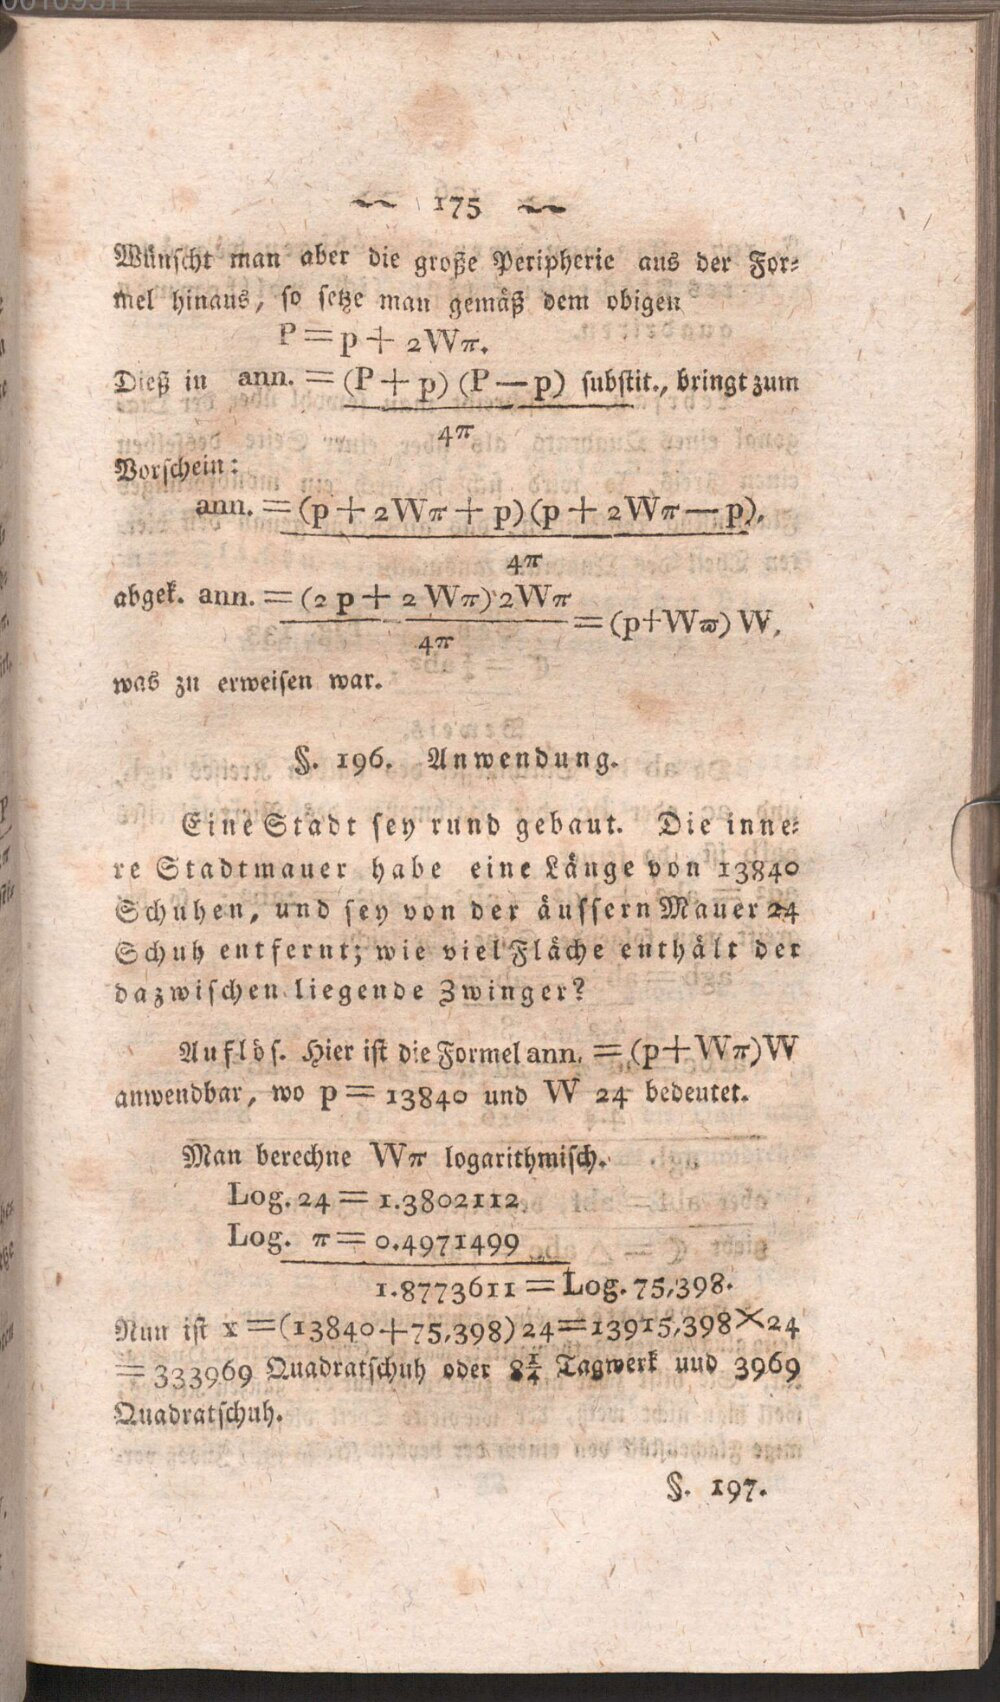 175
Wünscht man aber die große Peripherie aus der For⸗
mel hinaus, so setze man gemäß dem obigen
P = p + 2Wπ.
Dieß in ann. = (P + p) (P — p) substit., bringt zum
4π
Vorschein:
ann. = (p + 2Wπ + p) (p + 2Wπ — p),
4π
abgek. ann. = (2 p + 2 Wπ) 2Wπ
= (p+Wϖ) W,
4π
was zu erweisen war.
§. 196. Anwendung.
Eine Stadt sey rund gebaut. Die inne⸗
re Stadtmauer habe eine Länge von 13840
Schuhen, und sey von der äussern Mauer 24
Schuh entfernt; wie viel Fläche enthält der
dazwischen liegende Zwinger?
Auflös. Hier ist die Formel ann. = (p+Wπ)W
anwendbar, wo p = 13840 und W 24 bedeutet.
Man berechne Wπ logarithmisch.
Log. 24 = 1.3802112
Log. π = 0.4971499
1.8773611 = Log. 75,398.
Nun ist x = (13840+75,398) 24 = 13915,398 × 24
= 333969 Quadratschuh oder 8¼ Tagwerk und 3969
Quadratschuh.
§. 197.